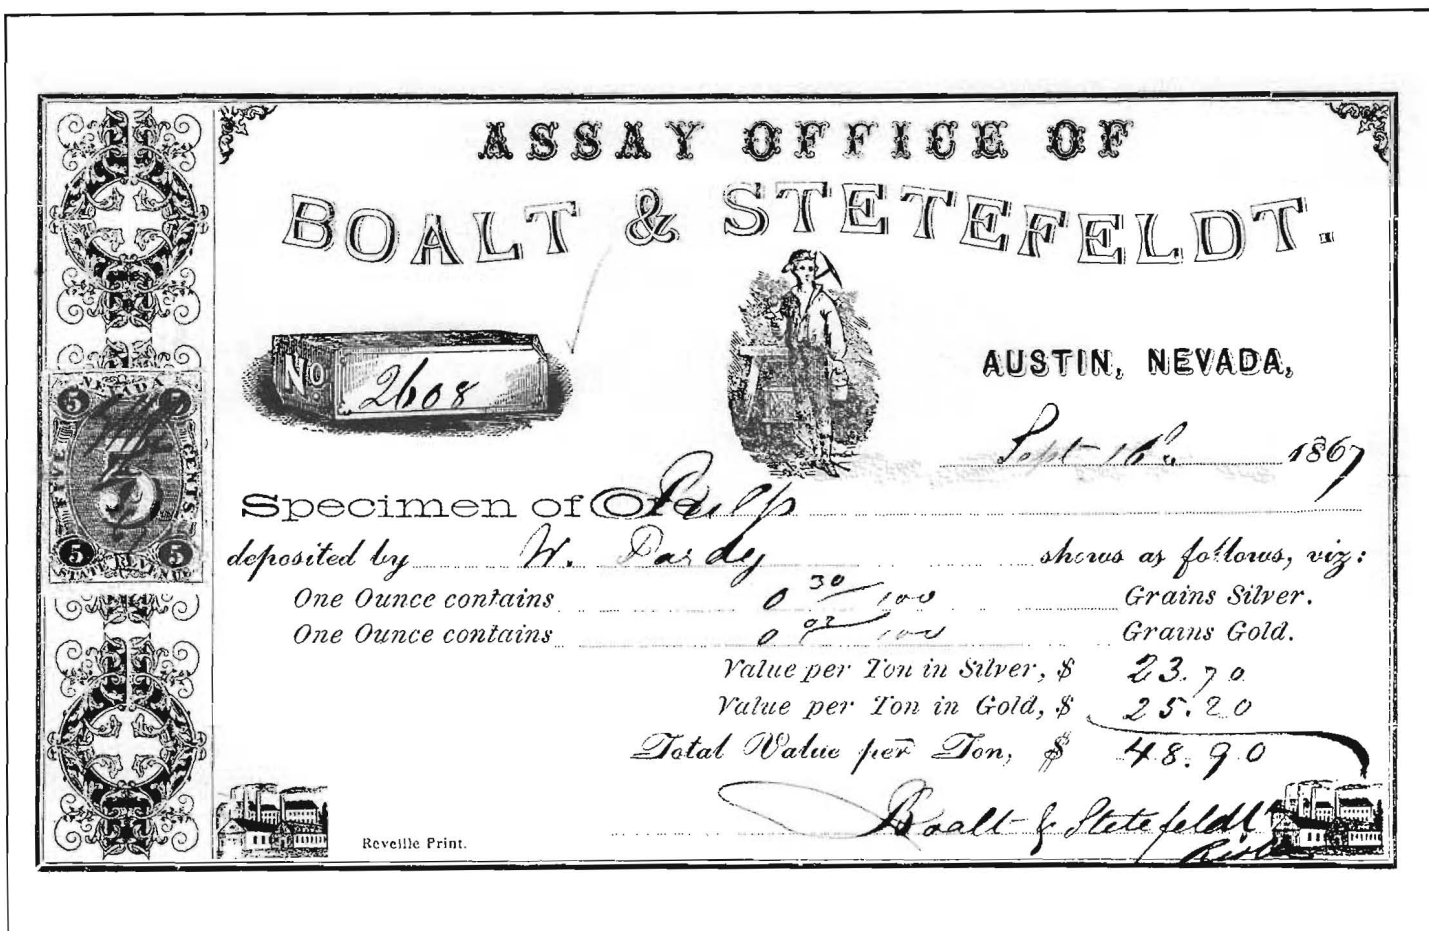 ASSAY OFFICE OF
BOALT & STETEFELDT.
No 2608
AUSTIN, NEVADA,
Sept 1867
NEVADA
5 5
FIVE CENTS
5 5
STATE REVENUE
Specimen of Ore Pulp
deposited by W. Pardy shows as follows, viz:
One Ounce contains 0 30/100 Grains Silver.
One Ounce contains 0 02/100 Grains Gold.
Value per Ton in Silver, $ 23.70
Value per Ton in Gold, $ 25.20
Total Value per Ton, $ 48.90
Boalt & Stetefeldt
Reveille Print.